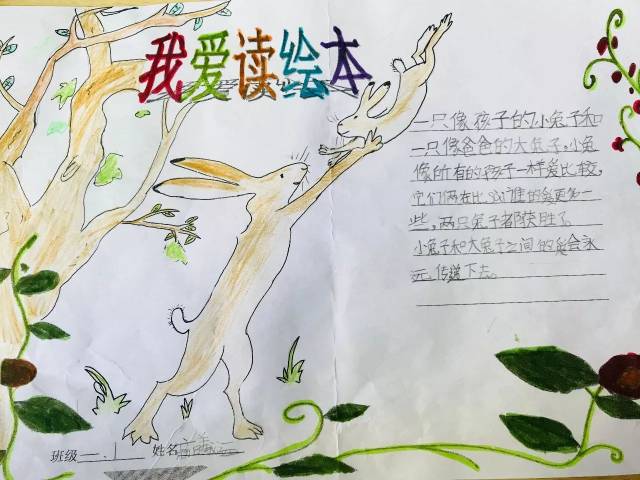 我爱读绘本
一只像孩子的小兔子和
一只像爸爸的大兔子,小兔
像所有的孩子一样爱比较,
它们俩在比 谁的爱更多一
些,两只兔子都获胜了
小兔子和大兔子之间的爱会永
远传递下去。
班级 一.1 姓名